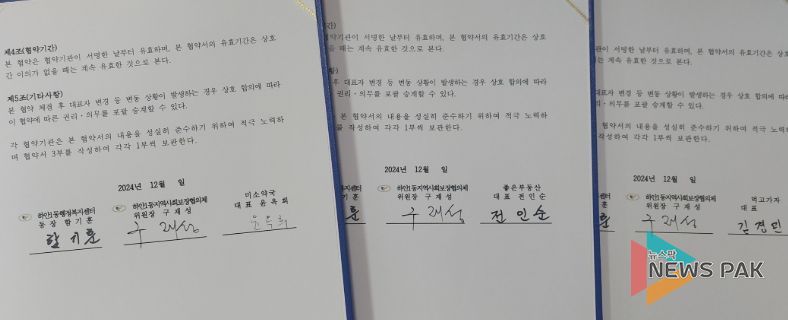 제4조(협약기간)
본 협약은 협약기관이 서명한 날부터 유효하며, 본 협약서의 유효기간은 상호
간 이의가 없을 때는 계속 유효한 것으로 본다.
제5조(기타사항)
본 협약 체결 후 대표자 변경 등 변동 상황이 발생하는 경우 상호 합의에 따라
이 협약에 따른 권리·의무를 포괄 승계할 수 있다.
각 협약기관은 본 협약서의 내용을 성실히 준수하기 위하여 적극 노력하
며 협약서 3부를 작성하여 각각 1부씩 보관한다.
2024년 12월 일
하안1동행정복지센터
동장 함기훈
함기훈
하안1동지역사회보장협의체
위원장 구재성
구재성
미소약국
대표 윤옥희
윤옥희
간)
협약기관이 서명한 날부터 유효하며, 본 협약서의 유효기간은 상호
없을 때는 계속 유효한 것으로 본다.
항)
후 대표자 변경 등 변동 상황이 발생하는 경우 상호 합의에 따라
권리·의무를 포괄 승계할 수 있다.
본 협약서의 내용을 성실히 준수하기 위하여 적극 노력하
를 작성하여 각각 1부씩 보관한다.
2024년 12월 일
복지센터
기훈
훈
하안1동지역사회보장협의체
위원장 구재성
구재성
좋은부동산
대표 전인순
전인순
관이 서명한 날부터 유효하며, 본 협약서의 유효기간은 상호
때는 계속 유효한 것으로 본다.
대표자 변경 등 변동 상황이 발생하는 경우 상호 합의에 따
의무를 포괄 승계할 수 있다.
협약서의 내용을 성실히 준수하기 위하여 적극 노력
작성하여 각각 1부씩 보관한다.
2024년 12월 일
센터
훈
훈
하안1동지역사회보장협의체
위원장 구재성
구재성
먹고가자
대표
김경민
뉴스팍
NEWS PAK